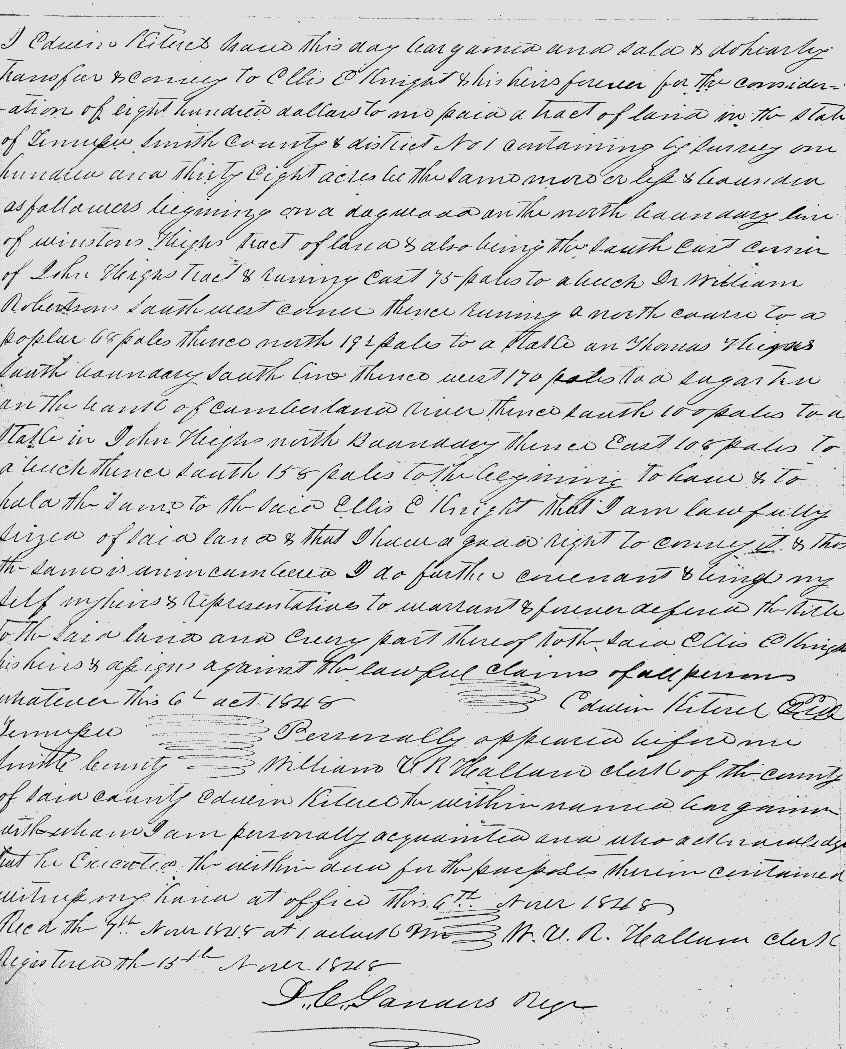 I Edwin Kitrel have this day bargained and sold & do hearby
transfur & convey to Ellis C Knight & his heirs forever for the consider-
-ation of eight hundred dollars to me paid a tract of land in the state
of Tennessee Smith County & district No 1 containing by survey one
hundred and thirty Eight acres be the same more or less & bounded
as followers begining on a dogwood on the north boundary line
of winstons Highs tract of land & also being the South East corner
of John Highs tract & runing East 75 poles to a beech Dr William
Robertsons South west corner thence runing a north course to a
poplar 68 poles thence north 192 poles to a stake on Thomas Highs
South boundary South line thence west 170 poles to a sugartree
on the bank of cumberland river thence south 100 poles to a
stake in John Highs north Boundary thence East 108 poles to
a beech thence south 158 poles to the begining to have & to
hold the same to the said Ellis C Knight that I am lawfully
sizea of said land & that I have a good right to convey it & that
the same is unincumbered I do further covenant & bind my
self my heirs & representatives to warrant & forever defend the title
to the said land and Every part thereof to the said Ellis C Knight
his heirs & assigns against the lawful claims of all persons
whatever this 6th oct 1848 Edwin Kitrel
Tennessee Personally appeared before me
Smith County William V R Hallum clerk of the county
of said county Edwin Kitrel the within named bargainor
with whom I am personally acquainted and who acknowledge
that he Executed the within deed for the purposes therein contained
witness my hand at office this 6th Nover 1848
Recd the 7th Nover 1848 at 1 oclock Pm W. V. R. Hallum clerk
Registered the 15th Nover 1848
D. C. Sanders Regr